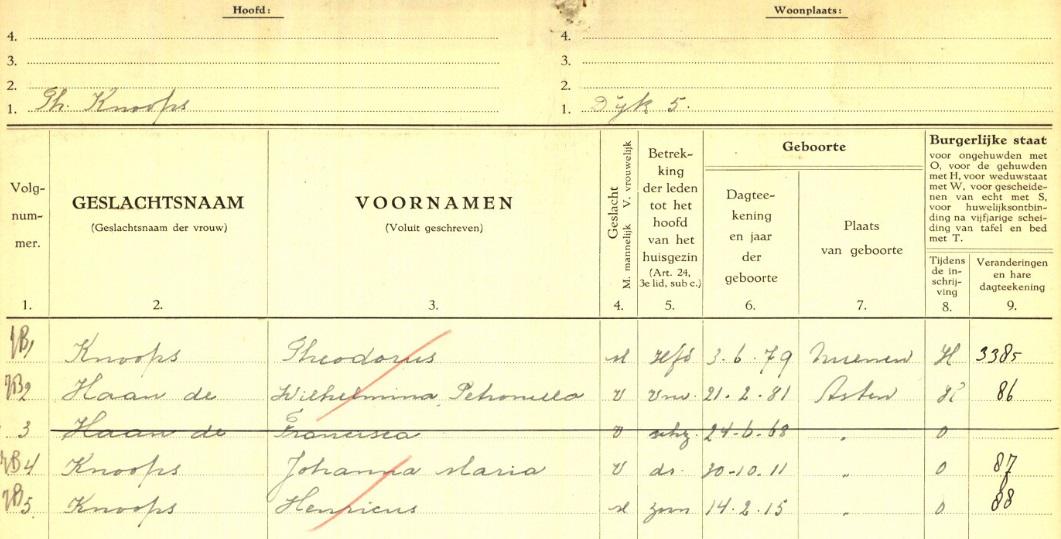 Hoofd: Woonplaats:
4. 4.
3. 3.
2. 2.
1. Th. Knoops 1. Dijk 5.
Volg-
num-
mer.
1.
GESLACHTSNAAM
(Geslachtsnaam der vrouw)
2.
VOORNAMEN
(Voluit geschreven)
3.
Geslacht
M. mannelijk V. vrouwelijk
4.
Betrek-
king
der leden
tot het
hoofd
van het
huisgezin
(Art. 24,
3e lid, sub c.)
5.
Geboorte
Dagtee-
kening
en jaar
der
geboorte
6.
Plaats
van geboorte
7.
Burgerlijke staat
voor ongehuwden met
O, voor de gehuwden
met H, voor weduwstaat
met W, voor gescheide-
nen van echt met S,
voor huwelijksontbin-
ding na vijfjarige schei-
ding van tafel en bed
met T.
Tijdens
de in-
schrij-
ving
8.
Veranderingen
en hare
dagteekening
9.
VB1 Knoops Theodorus M hfd 3.6.79 Nuenen H 3385
VB2 Haan de Wilhelmina Petronella V vrw. 21.2.81 Asten H 86
3 Haan de Francisca V schz. 24-6-68 " O
VB4 Knoops Johanna Maria V dr. 20-10-11 " O 87
VB5. Knoops Henricus M zoon 14.2.15 " O 88